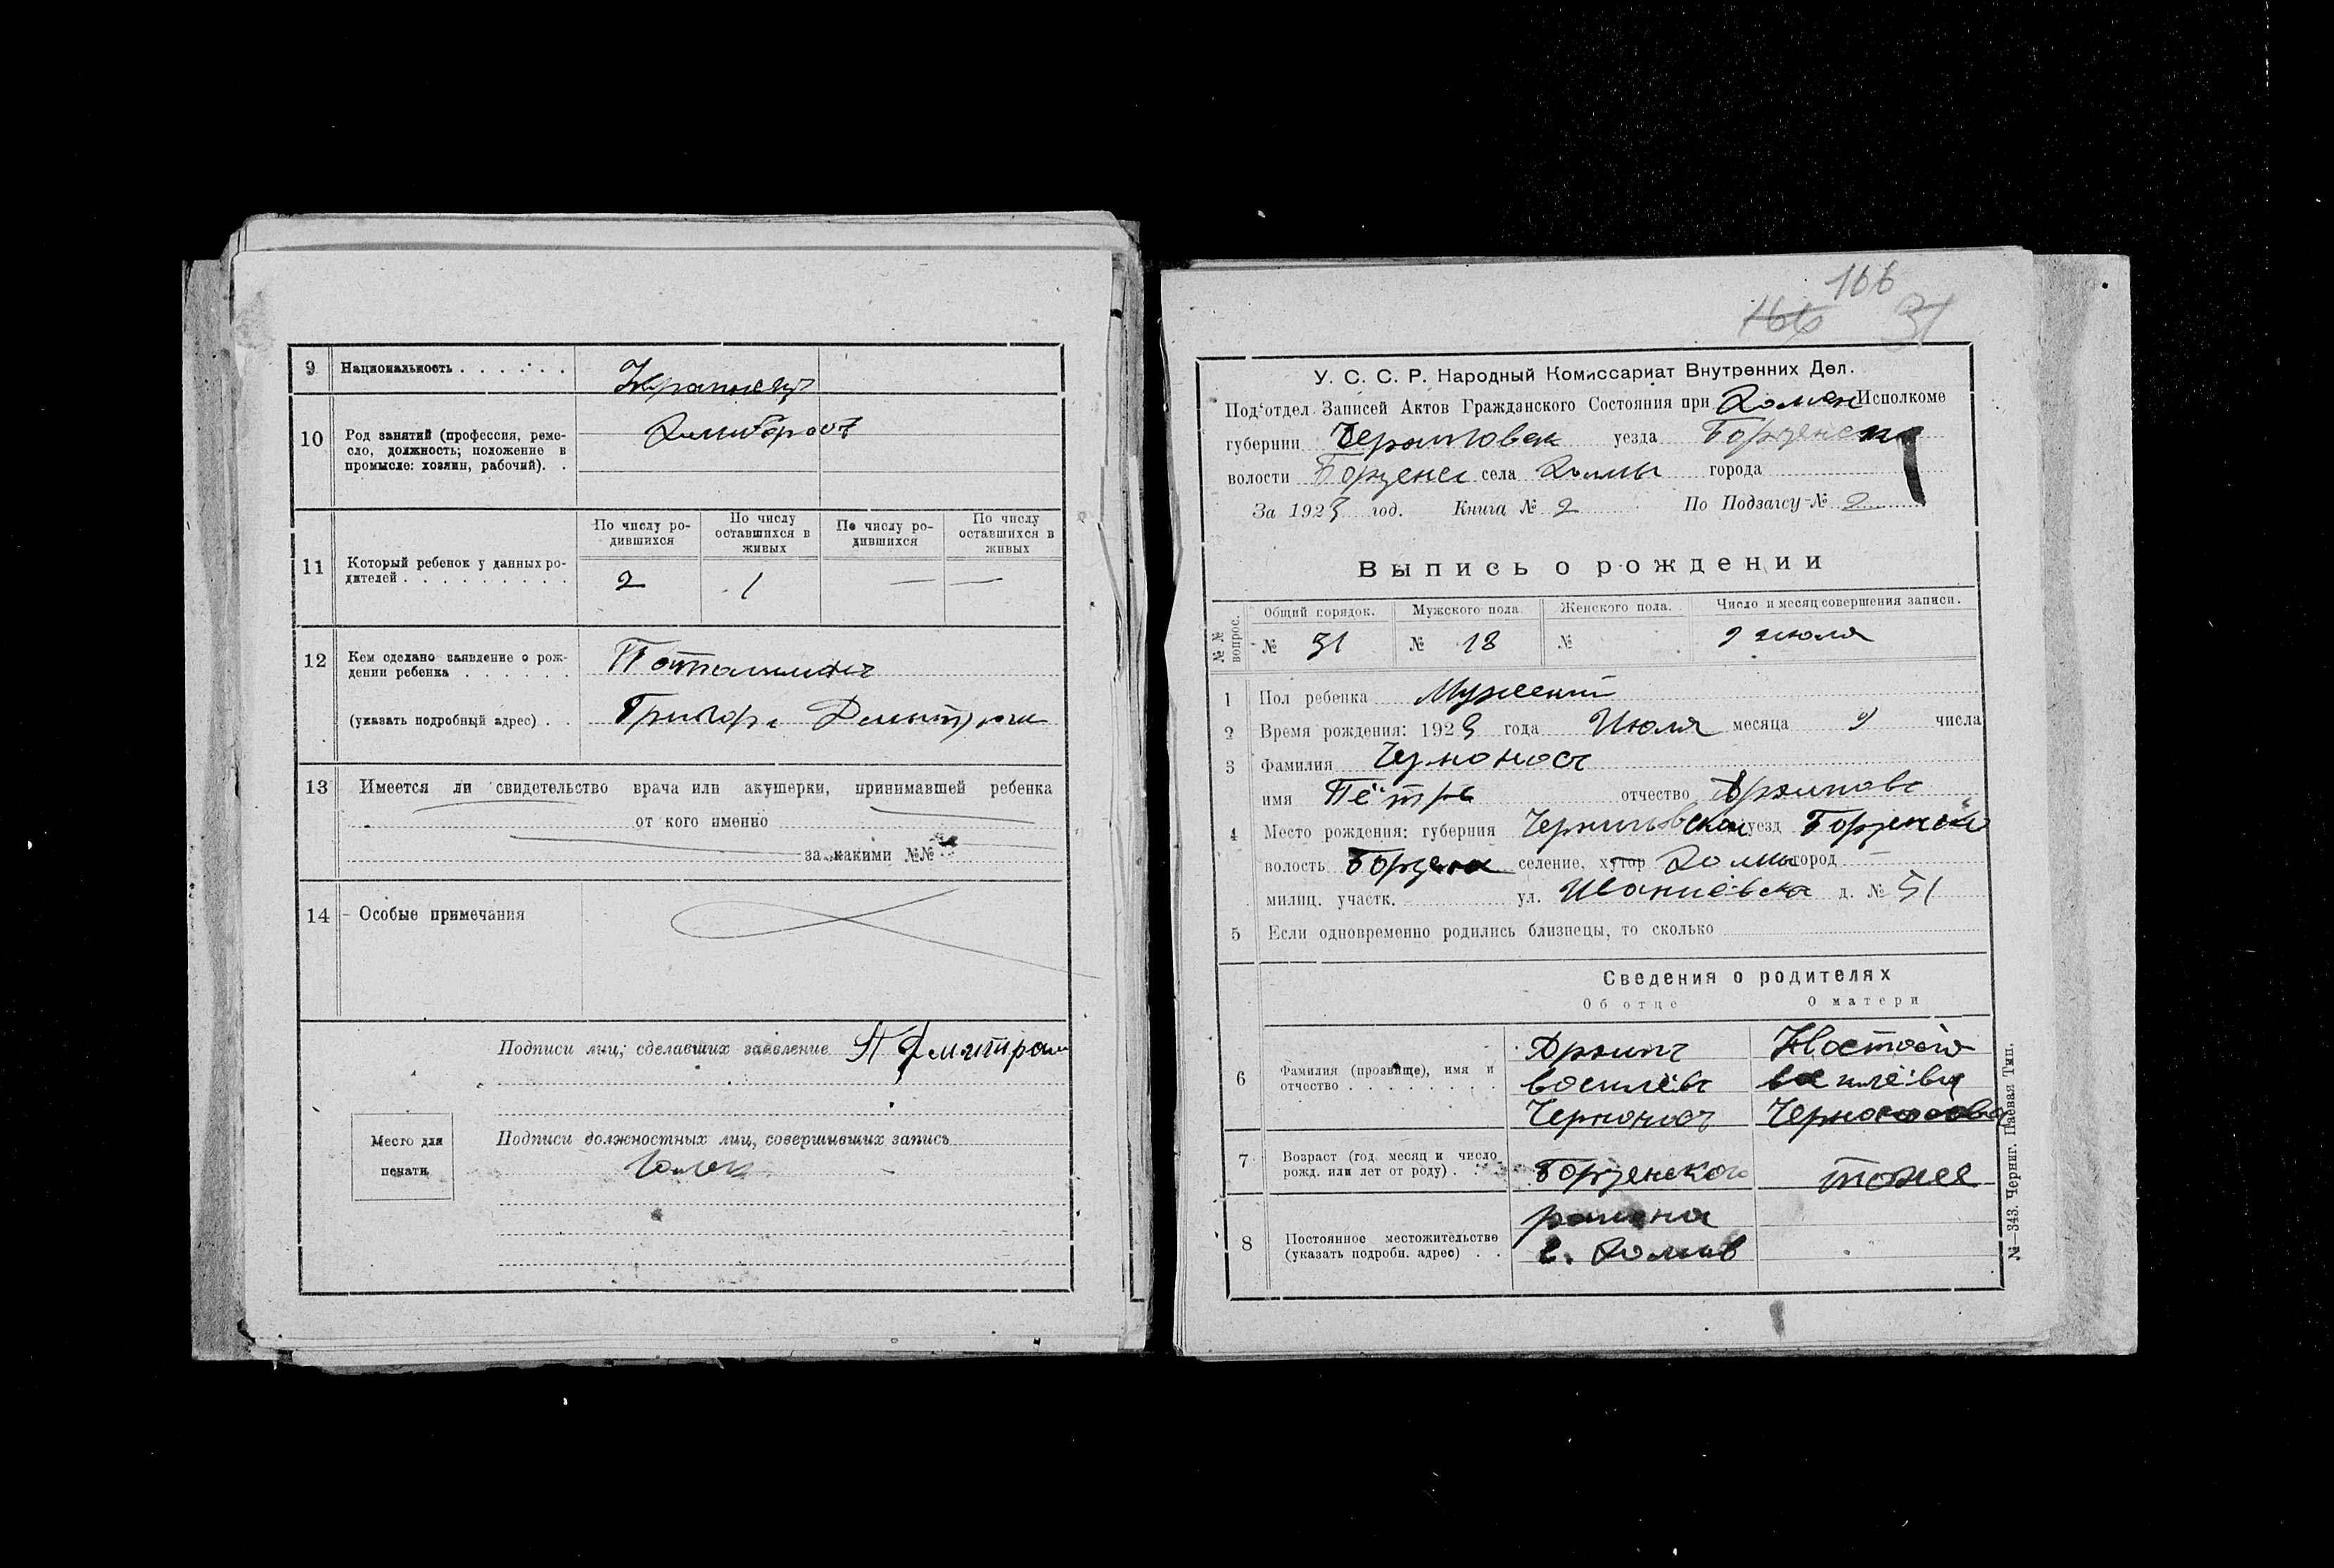 9 Национальность Украинец
10 Род занятий (профессия, реме-
сло, должность; положение в
промысле: хозяин, рабочий).
Хлибороб
11 Который ребенок у данных ро-
дителей
По числу ро-
дившихся
По числу
оставшихся в
живых
По числу ро-
дившихся
По числу
оставшихся в
живых
2 1 — —
12 Кем сделано заявление о рож-
дении ребенка
(указать подробный адрес)
Григор Дмитр
13 Имеется ли свидетельство врача или акушерки, принимавшей ребенка
от кого именно
за какими №№
14 Особые примечания
Подписи лиц, сделавших заявление
Место для
печати
Подписи должностных лиц, совершивших запись
166
166 31
У. С. С. Р. Народный Комиссариат Внутренних Дел.
Под'отдел Записей Актов Гражданского Состояния при Исполкоме
губернии Черниговск уезда Борзенск
волости Борзенс села города
За 1923 год. Книга № 2 По Подзагсу № 2
Выпись о рождении
№№ вопрос.
Общий порядок. Мужского пола. Женского пола. Число и месяц совершения записи.
№ 31 № 18 № 9 июля
1 Пол ребенка Мужский
2 Время рождения: 1923 года Июля месяца 9 числа
3 Фамилия Черноног
имя Пётр отчество Архипов
4 Место рождения: губерния Черниговская уезд Борзенской
волость Борзена селение, хутор город —
милиц. участк. ул. д. № 51
5 Если одновременно родились близнецы, то сколько
Сведения о родителях
Об отце О матери
6 Фамилия (прозвище), имя и
отчество
Архип
Василёв
Настася
Василёвна
7 Возраст (год месяц и число
рожд. или лет от роду)
Борзенского тоже
8 Постоянное местожительство
(указать подробн. адрес)
района
с.
№—343. Черниг. Паевая Тип.